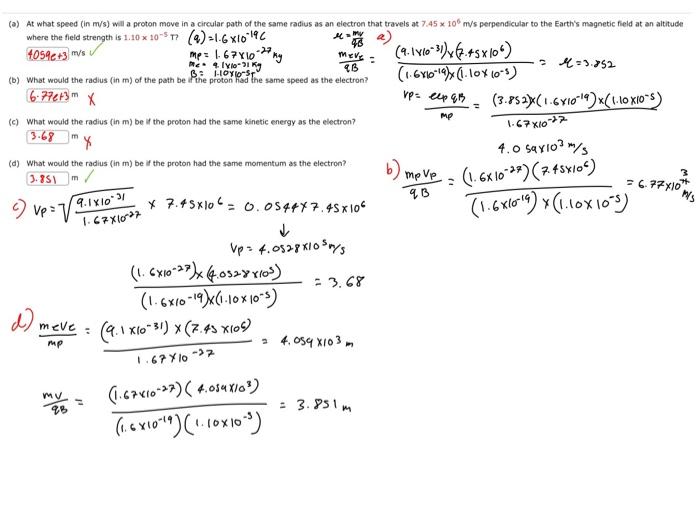 (a) At what speed (in m/s) will a proton move in a circular path of the same radius as an electron that travels at 7.45 × 10⁶ m/s perpendicular to the Earth's magnetic field at an altitude
where the field strength is 1.10 × 10⁻⁵ T?
4.059e+3 m/s ✓
(b) What would the radius (in m) of the path be if the proton had the same speed as the electron?
6.77e+3 m X
(c) What would the radius (in m) be if the proton had the same kinetic energy as the electron?
3.68 m X
(d) What would the radius (in m) be if the proton had the same momentum as the electron?
3.851 m ✓
(q) = 1.6×10⁻¹⁹C
mp = 1.67×10⁻²⁷ kg
me = 9.1×10⁻³¹ kg
B = 1.10×10⁻⁵T
r = mv/qB
a)
meve/qB = (9.1×10⁻³¹)×(7.45×10⁶)/(1.6×10⁻¹⁹)×(1.10×10⁻⁵) = r = 3.852
(3.852)×(1.6×10⁻¹⁹)×(1.10×10⁻⁵)/1.67×10⁻²⁷
4.059×10³ m/s
b) mpvp/qB = (1.6×10⁻²⁷)(7.45×10⁶)/(1.6×10⁻¹⁹)×(1.10×10⁻⁵) = 6.77×10³ m/s
c) Vp = √9.1×10⁻³¹/1.67×10⁻²⁷ × 7.45×10⁶ = 0.0544×7.45×10⁶
↓
Vp = 4.0528×10⁵ m/s
(1.6×10⁻²⁷)×(4.0528×10⁵)/(1.6×10⁻¹⁹)×(1.10×10⁻⁵) = 3.68
d) meve/mp = (9.1×10⁻³¹)×(7.45×10⁶)/1.67×10⁻²⁷ = 4.059×10³ m
mv/qB = (1.67×10⁻²⁷)(4.059×10³)/(1.6×10⁻¹⁹)(1.10×10⁻⁵) = 3.851 m